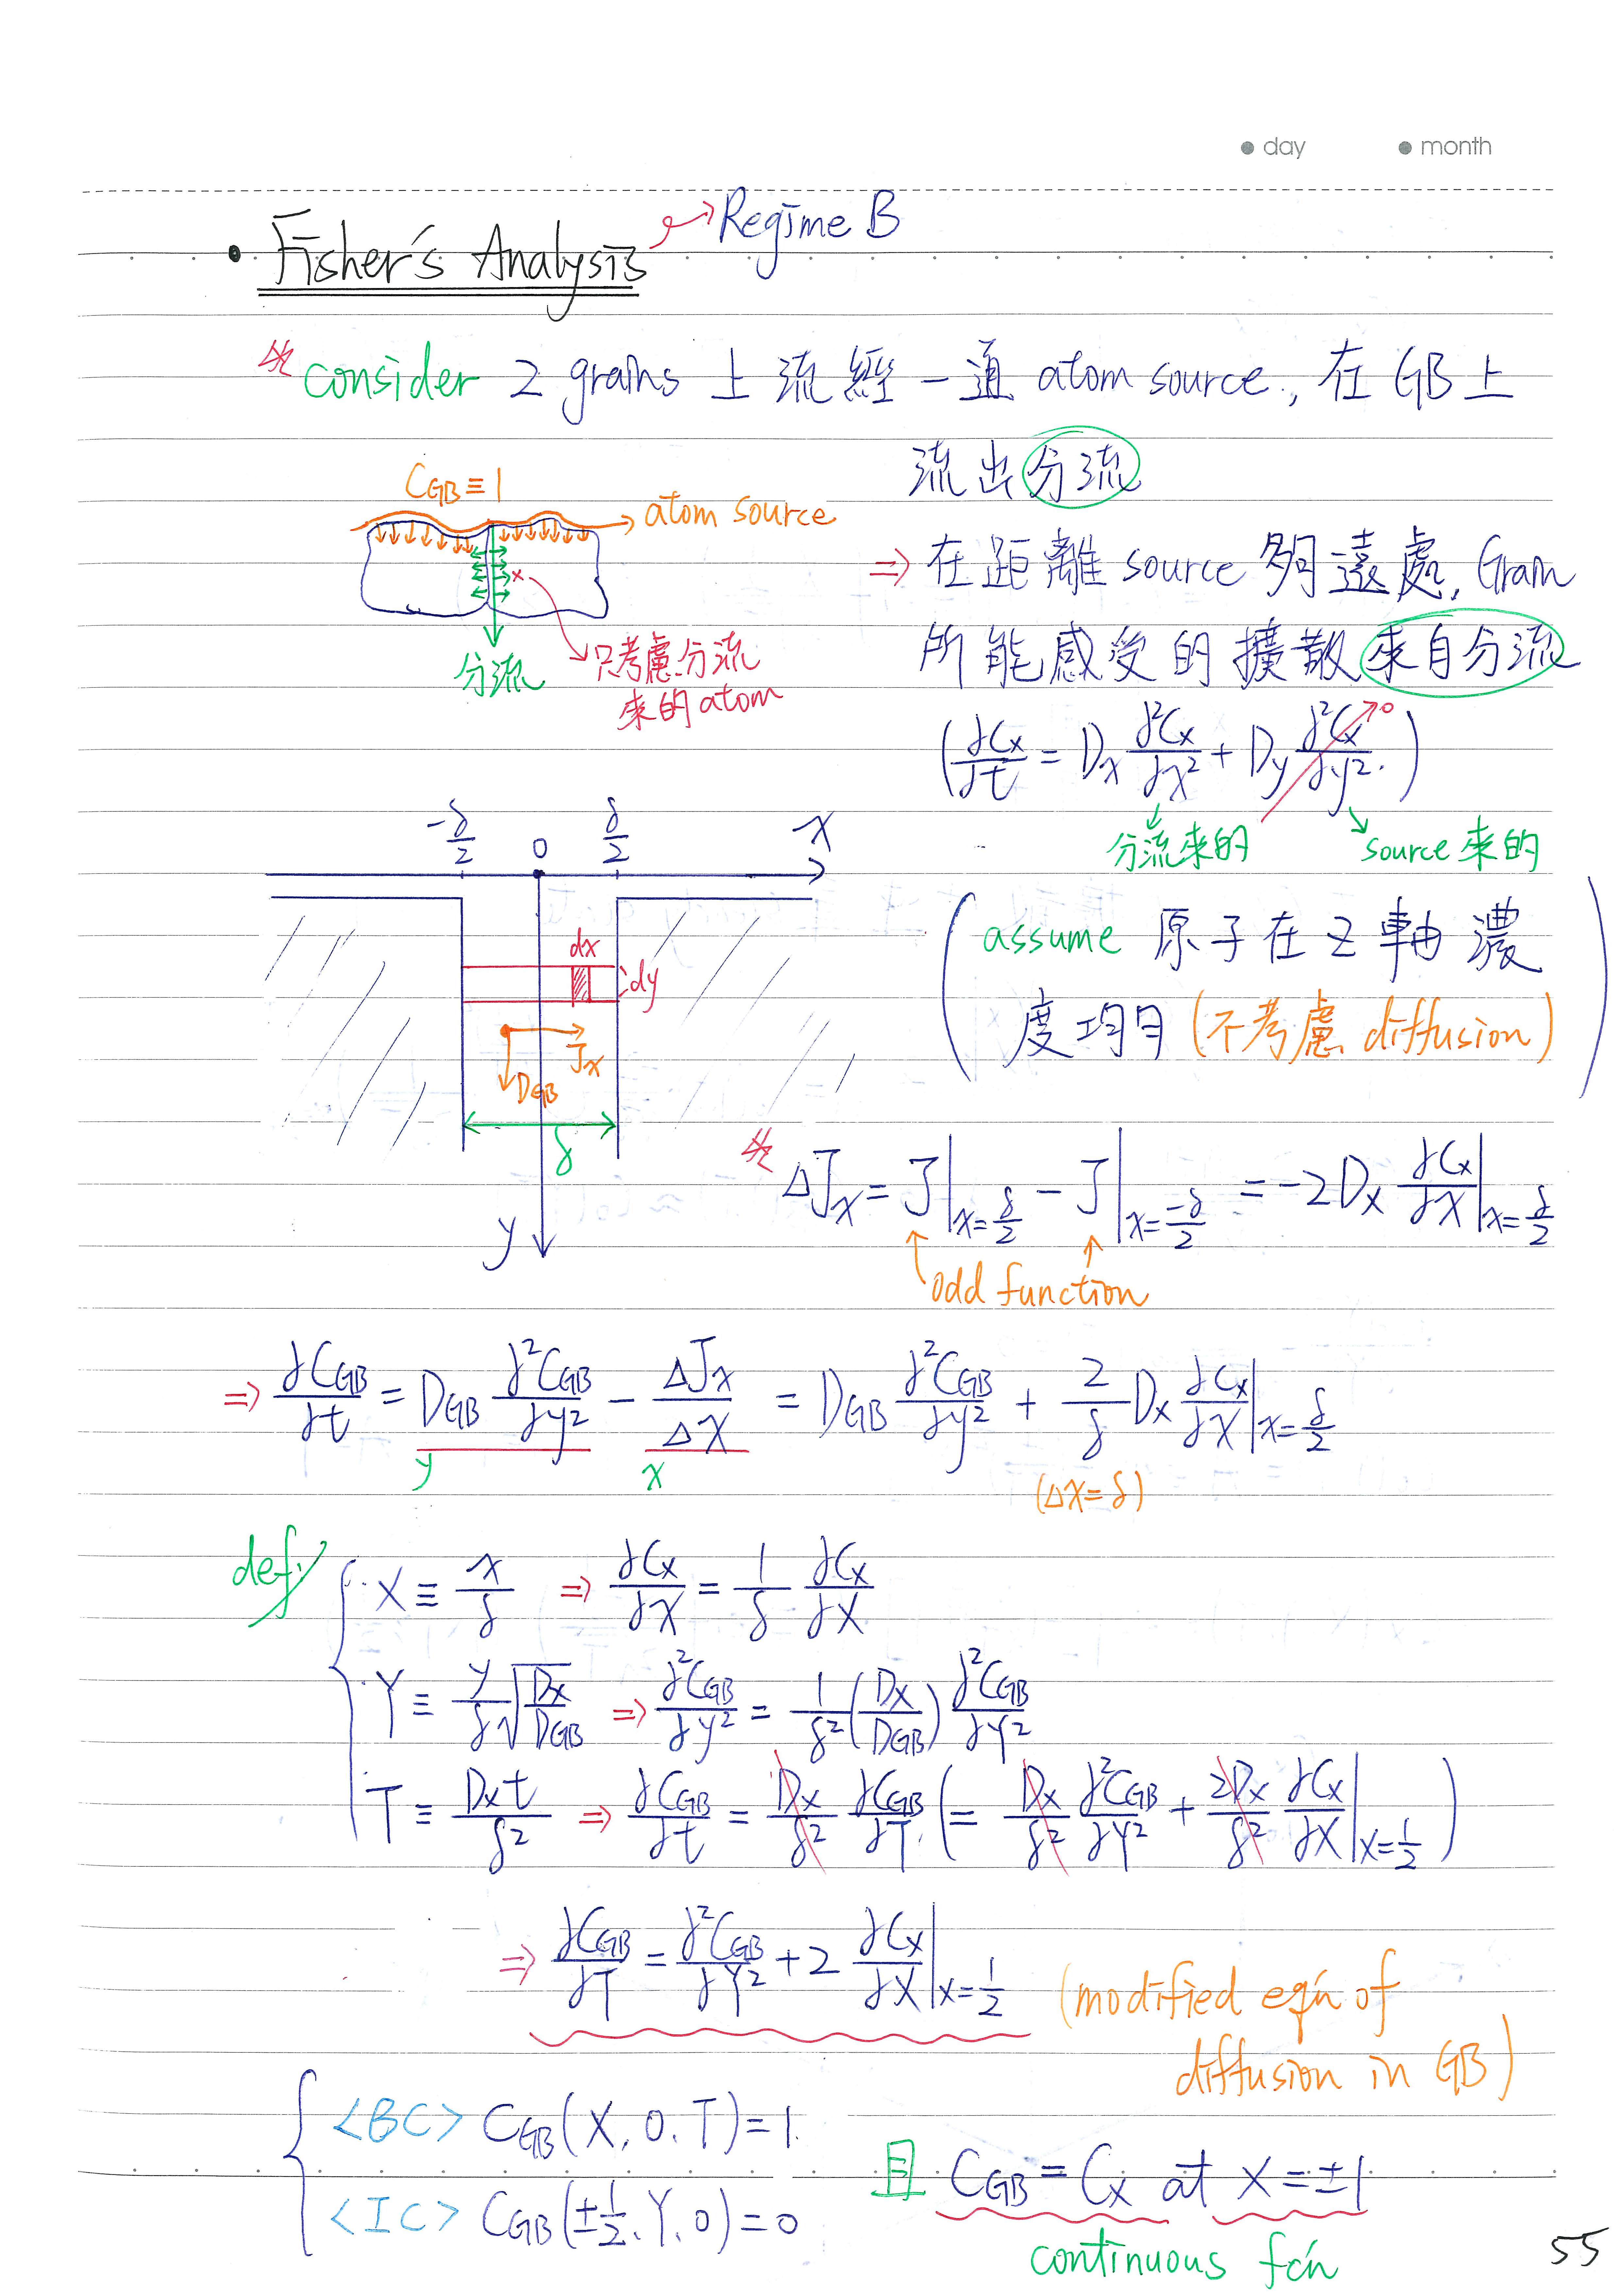 ● day ● month
• Fisher's Analysis → Regime B
※ consider 2 grains 上流經一道 atom source, 在 GB 上
流出分流
C_GB ≡ 1
→ atom source
⇒ 在距離 source 夠遠處, Grain
所能感受的擴散來自分流
分流
只考慮分流
來的 atom
(∂Cx/∂t = Dx ∂²Cx/∂x² + Dy ∂²Cx/∂y² → 0)
分流來的 source 來的
-δ/2 0 δ/2 x
dx
dy
Jx
D_GB
δ
y
(assume 原子在 Z 軸濃
度均勻 (不考慮 diffusion))
※ ΔJx = J|x=δ/2 - J|x=-δ/2 = -2Dx ∂Cx/∂x|x=δ/2
odd function
⇒ ∂C_GB/∂t = D_GB ∂²C_GB/∂y² - ΔJx/Δx = D_GB ∂²C_GB/∂y² + 2/δ Dx ∂Cx/∂x|x=δ/2
y x (Δx=δ)
def, X ≡ x/δ ⇒ ∂Cx/∂x = 1/δ ∂Cx/∂X
Y ≡ y/δ √(Dx/D_GB) ⇒ ∂²C_GB/∂y² = 1/δ² (Dx/D_GB) ∂²C_GB/∂Y²
T ≡ Dx t/δ² ⇒ ∂C_GB/∂t = Dx/δ² ∂C_GB/∂T (= Dx/δ² ∂²C_GB/∂Y² + 2Dx/δ² ∂Cx/∂X|X=1/2)
⇒ ∂C_GB/∂T = ∂²C_GB/∂Y² + 2 ∂Cx/∂X|X=1/2 (modified eq'n of
diffusion in GB)
<BC> C_GB(X, 0, T) = 1
<IC> C_GB(±1/2, Y, 0) = 0
且 C_GB = Cx at X = ±1
continuous fc'n
55